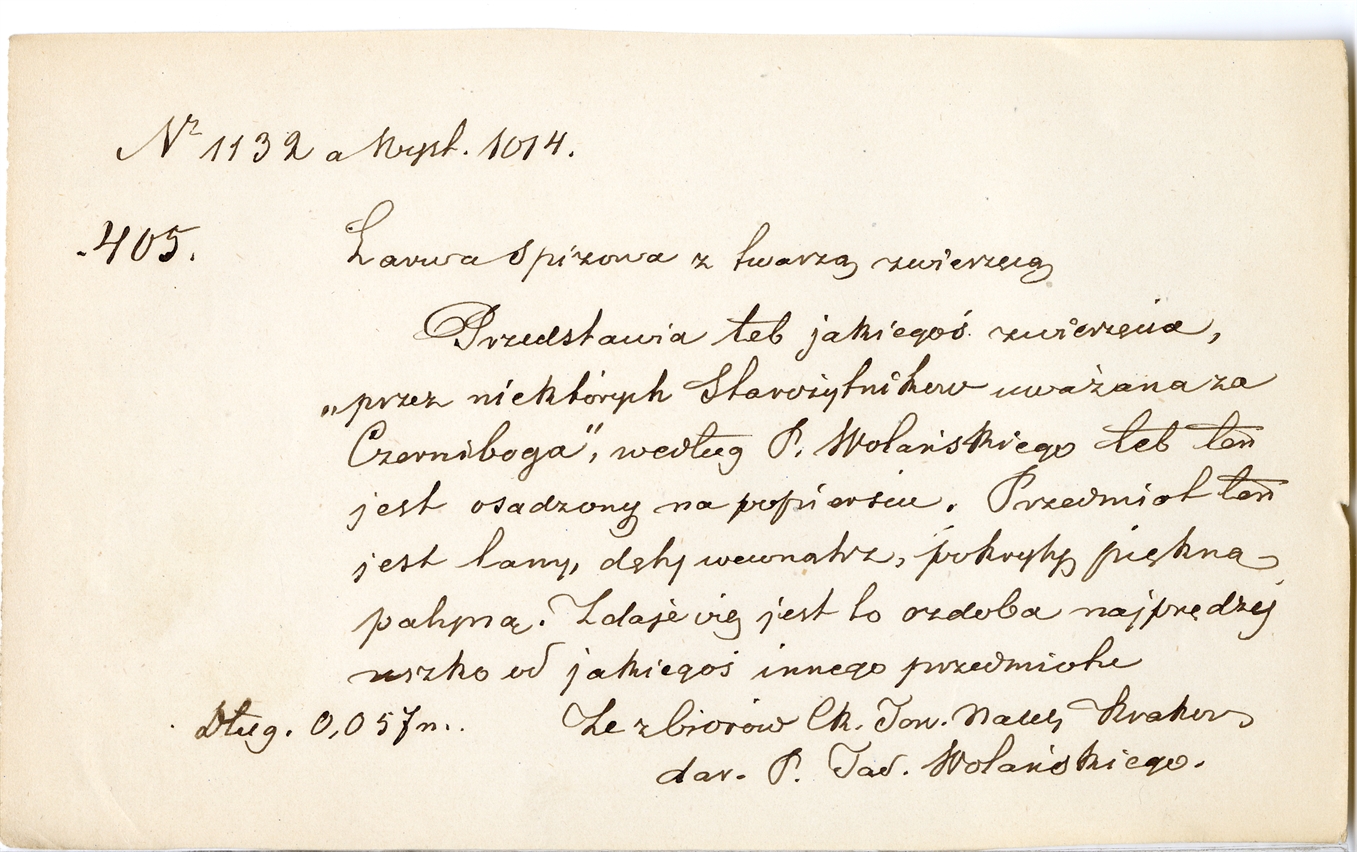 Nr 1132 a Wyst. 1014.
405. Larwa Spiżowa z twarzą zwierzęcą
Przedstawia łeb jakiegoś zwierzęcia,
„przez niektórych Starożytników uważana za
Czerniboga", według P. Wolańskiego łeb ten
jest osadzony na popiersiu. Przedmiot ten
jest lany, dęty wewnątrz, pokryty piękną
patyną. Zdaje się jest to ozdoba najprędzej
uszko od jakiegoś innego przedmiotu
Dług. 0,057m. Ze zbiorów Ck. Tow. Nauk, Krakow,
dar. P. Tad. Wolańskiego.